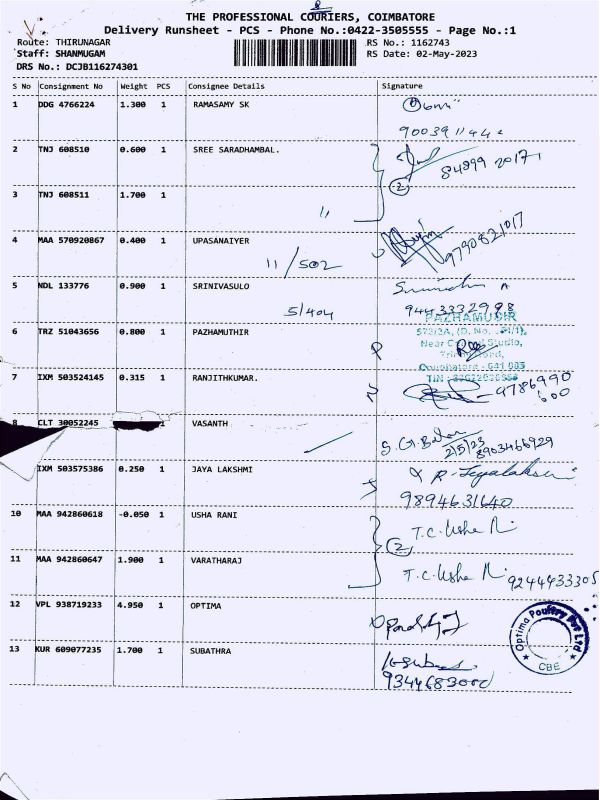 THE PROFESSIONAL COURIERS, COIMBATORE
Delivery Runsheet - PCS - Phone No.:0422-3505555 - Page No.:1
Route: THIRUNAGAR RS No.: 1162743
Staff: SHANMUGAM RS Date: 02-May-2023
DRS No.: DCJB116274301
S No Consignment No Weight PCS Consignee Details Signature
1 DDG 4766224 1.300 1 RAMASAMY SK
2 TNJ 608510 0.600 1 SREE SARADHAMBAL.
84899 20171
2
3 TNJ 608511 1.700 1
11
4 MAA 570920867 0.400 1 UPASANAIYER 9790821017
11/502
5 NDL 133776 0.900 1 SRINIVASULO
5/404 9443332998
PAZHAMUDIR
6 TRZ 51043656 0.800 1 PAZHAMUTHIR
Coimbatore - 641 005
7 IXM 503524145 0.315 1 RANJITHKUMAR. 9786990
600
8 CLT 30052245 1 VASANTH
2/5/23 8903466929
IXM 503575386 0.250 1 JAYA LAKSHMI
9894631640
10 MAA 942860618 -0.050 1 USHA RANI T.C. Usha
2
11 MAA 942860647 1.900 1 VARATHARAJ T.C. Usha 9244433305
12 VPL 938719233 4.950 1 OPTIMA
Optima Poultry Pvt Ltd
CBE
13 KUR 609077235 1.700 1 SUBATHRA